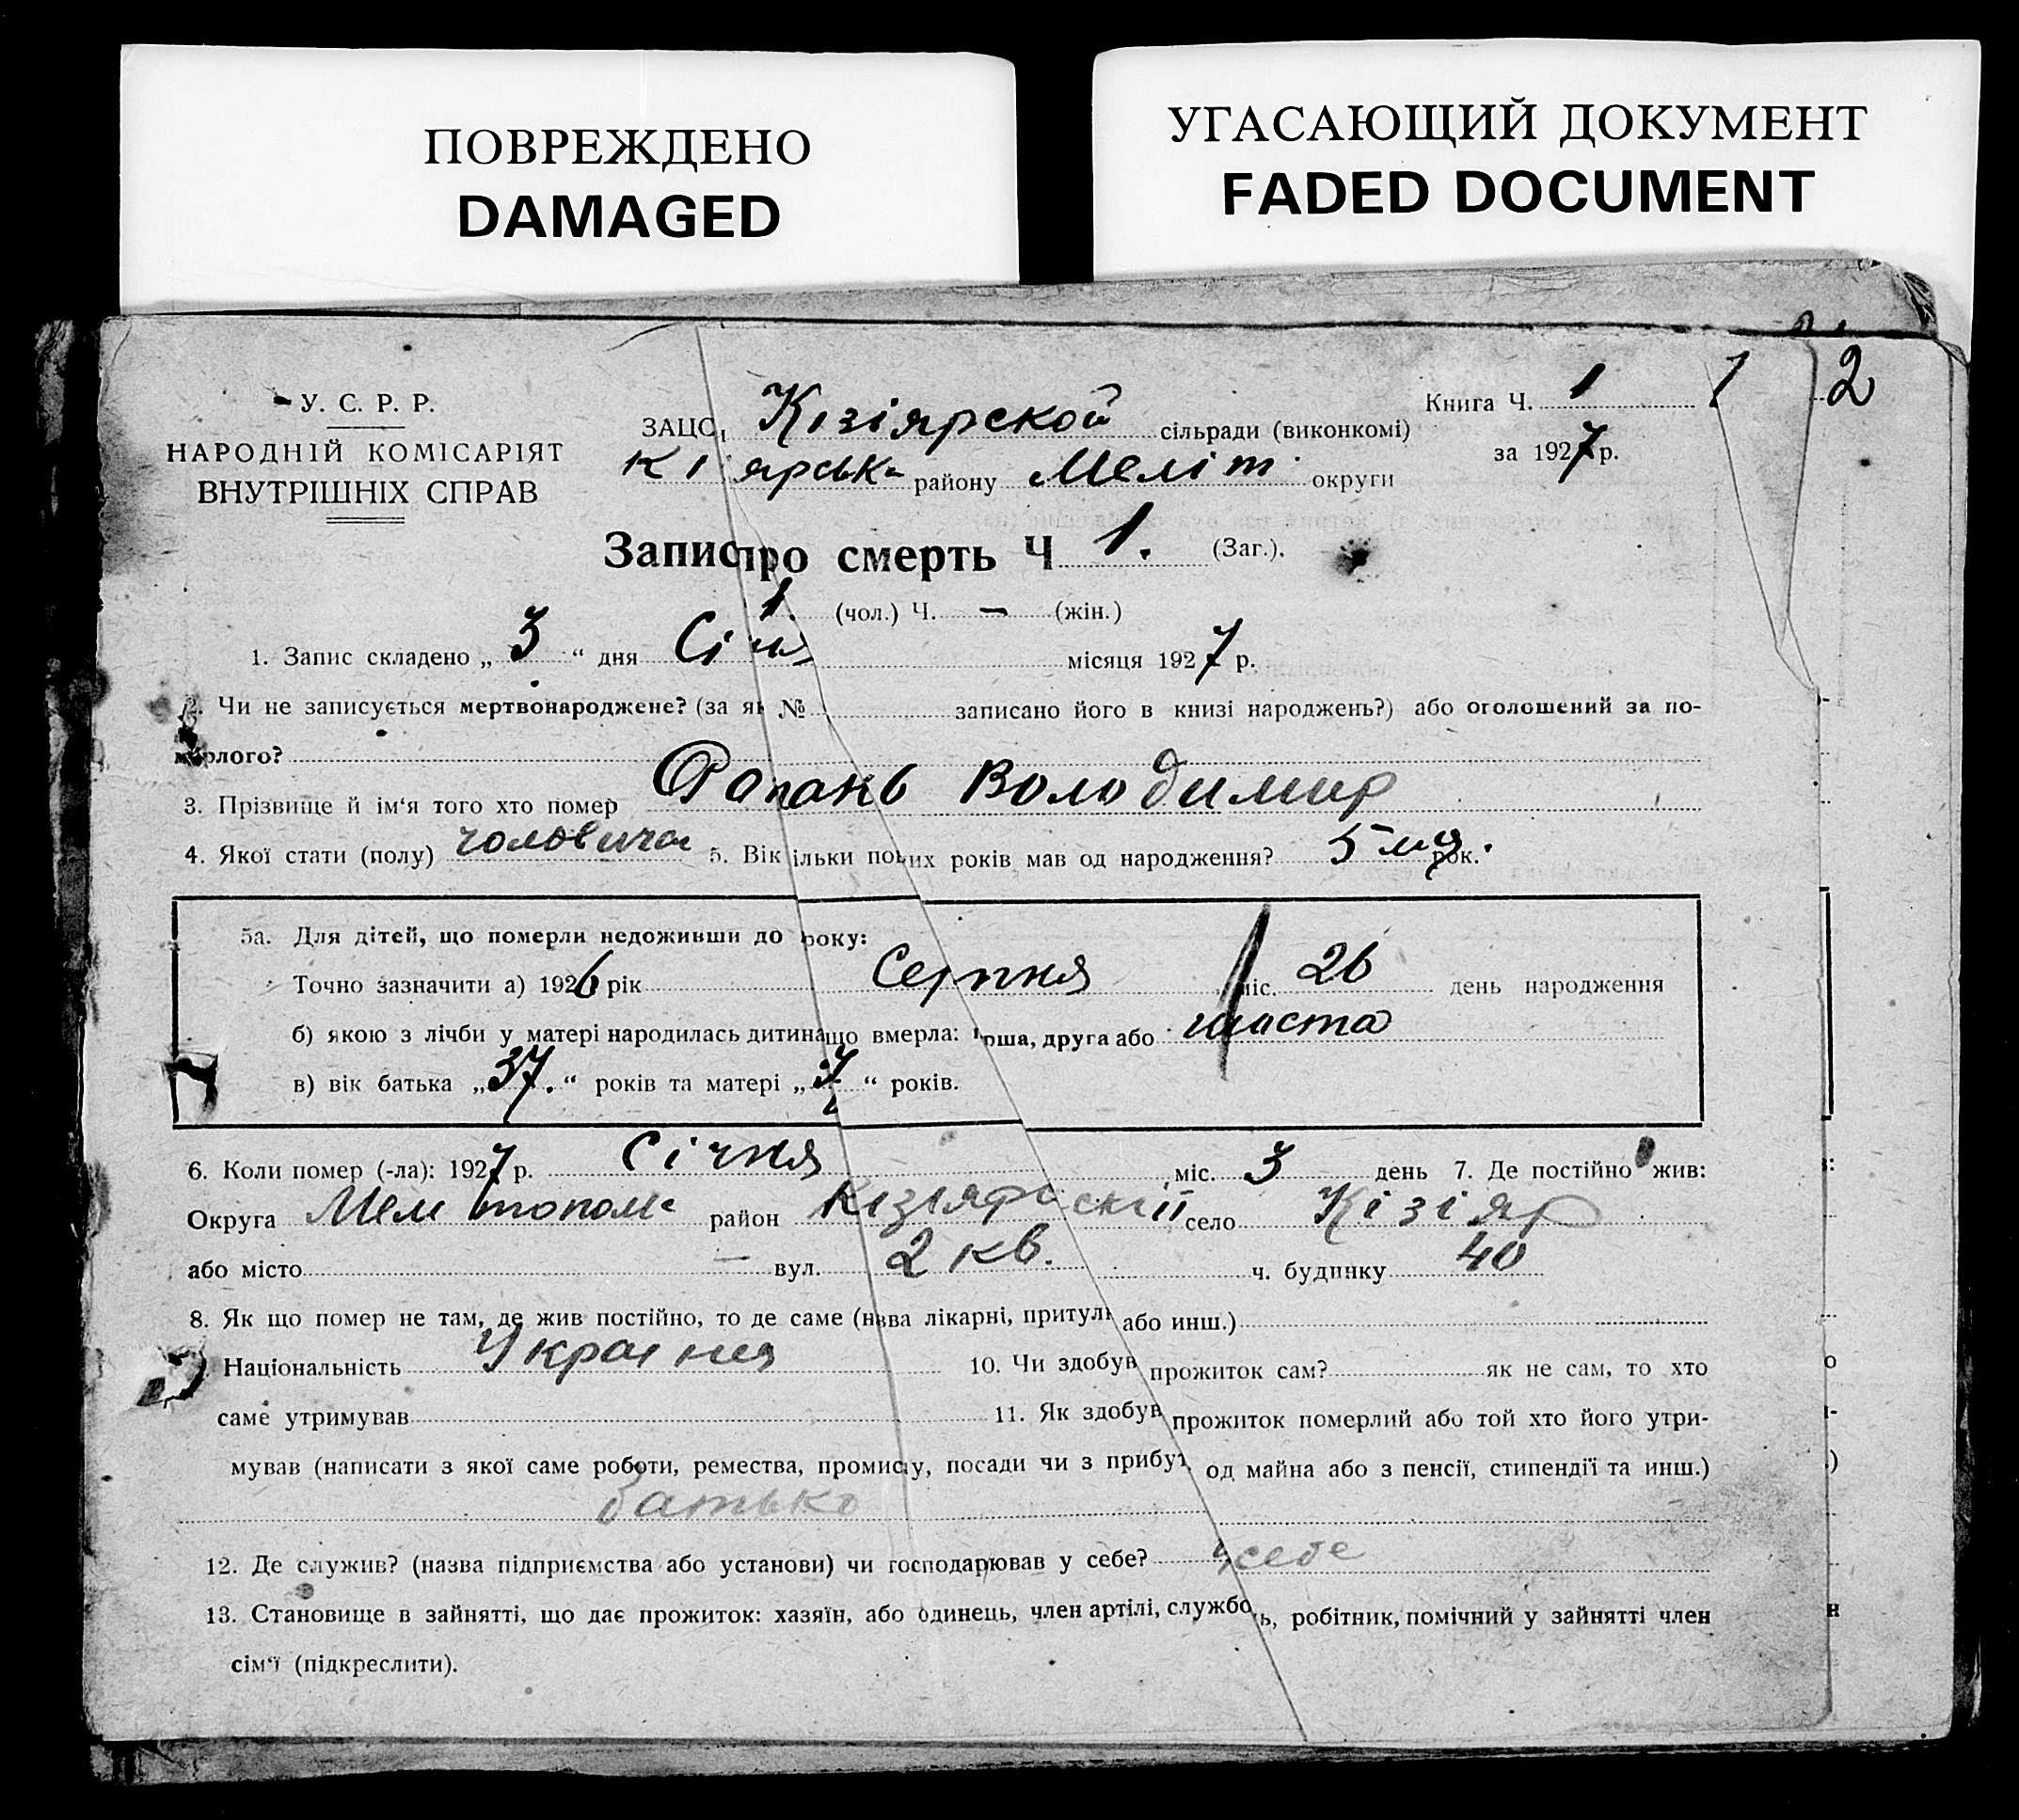 ПОВРЕЖДЕНО
DAMAGED
УГАСАЮЩИЙ ДОКУМЕНТ
FADED DOCUMENT
1 2
У. С. Р. Р.
НАРОДНІЙ КОМІСАРІЯТ
ВНУТРІШНІХ СПРАВ
Книга Ч. 1
за 1927 р.
ЗАЦС Кізіярской сільради (виконкомі)
району Меліт. округи
Запис про смерть Ч 1. (Заг.).
1 (чол.) Ч. — (жін.)
1. Запис складено „ 3 “ дня Січня місяця 1927 р.
2. Чи не записується мертвонароджене? (за як № записано його в книзі народжень?) або оголошений за по-
мерлого?
3. Прізвище й ім‘я того хто помер Володимир
4. Якої стати (полу) чоловіча 5. Вік ільки повних років мав од народження? 5 міс. рок.
5а. Для дітей, що померли недоживши до року:
Точно зазначити а) 1926 рік Серпня міс. 26 день народження
б) якою з лічби у матері народилась дитина що вмерла: перша, друга або шоста
в) вік батька „ 37. “ років та матері „ “ років.
6. Коли помер (-ла): 1927 р. Січня міс. 3 день 7. Де постійно жив:
Округа Мелітополь район Кізіярскії село Кізіяр
або місто — вул. 2 кв. ч. будинку 40
8. Як що помер не там, де жив постійно, то де саме (назва лікарні, притул або инш.)
Національність Україня 10. Чи здобув прожиток сам? як не сам, то хто
саме утримував 11. Як здобув прожиток померлий або той хто його утри-
мував (написати з якої саме роботи, ремества, промислу, посади чи з прибут. од майна або з пенсії, стипендії та инш.)
батько
12. Де служив? (назва підприємства або установи) чи господарював у себе? у себе
13. Становище в зайнятті, що дає прожиток: хазяїн, або одинець, член артілі, службовець, робітник, помічний у зайнятті член
сім‘ї (підкреслити).